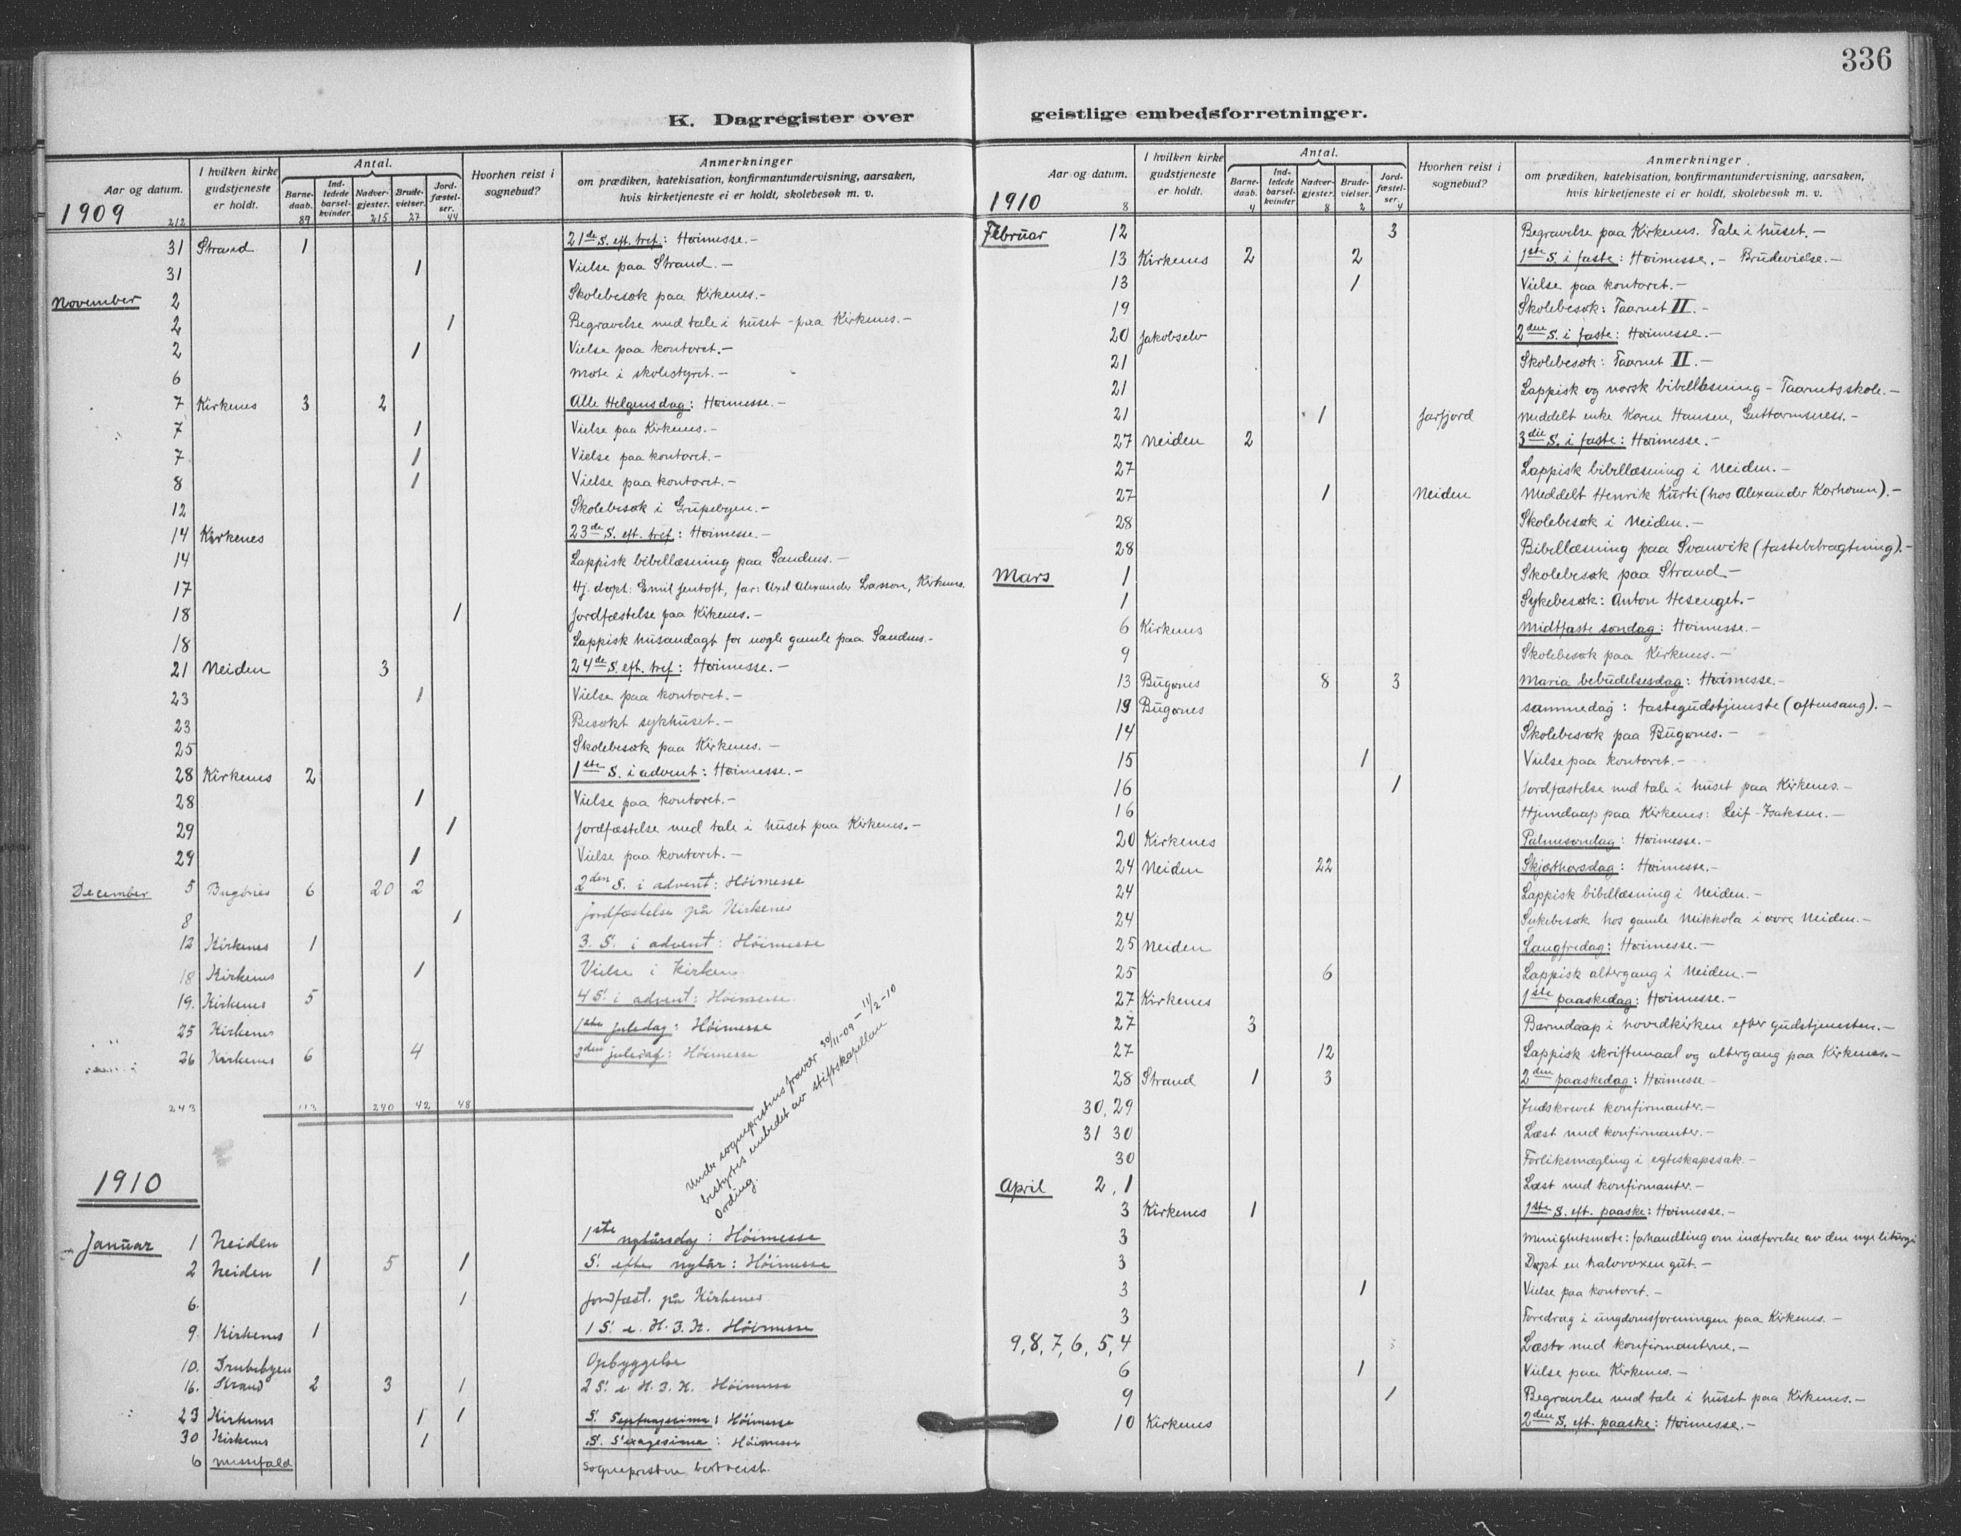 336
K. Dagregister over geistlige embedsforretninger.
Aar og datum.
I hvilken kirke gudstjeneste er holdt.
Antal.
Barne-daab.
Ind-ledede barsel-kvinder.
Nadver-gjester.
Brude-vielser.
Jord-fæstel-ser.
Hvorhen reist i sognebud?
Anmerkninger
om prædiken, katekisation, konfirmantundervisning, aarsaken,
hvis kirketjeneste ei er holdt, skolebesøk m. v.
1909 212 89 215 27 44
31 Strand 1 21de S. eft. tref.: Høimesse.-
31 1 Vielse paa Strand.-
November 2 Skolebesøk paa Kirkenes.-
2 1 Begravelse med tale i huset - paa Kirkenes.-
2 1 Vielse paa kontoret.-
6 Møte i skolestyret.-
7 Kirkenes 3 2 Alle Helgensdag: Høimesse.-
7 1 Vielse paa Kirkenes.-
7 1 Vielse paa kontoret.-
8 1 Vielse paa kontoret.-
12 Skolebesøk i Grubebyen.-
14 Kirkenes 23de S. eft. tref.: Høimesse.-
14 Lappisk bibellæsning paa Sandnes.-
17 Hj. døpt: Emil Jentoft, far: Axel Alexander Larsson, Kirkenes.
18 1 Jordfæstelse paa Kirkenes.-
18 Lappisk husandagt for nogle gamle paa Sandnes.-
21 Neiden 3 24de S. eft. tref.: Høimesse.-
23 1 Vielse paa kontoret.-
23 Besøkt sykhuset.-
25 Skolebesøk paa Kirkenes.-
28 Kirkenes 2 1ste S. i advent: Høimesse.-
28 1 Vielse paa kontoret.-
29 1 Jordfæstelse med tale i huset paa Kirkenes.-
29 1 Vielse paa kontoret.-
December 5 Bugønes 6 20 2 2den S. i advent: Høimesse
8 1 Jordfæstelse på Kirkenes
12 Kirkenes 1 3. S. i advent: Høimesse
18 Kirkenes 1 Vielse i Kirken
19. Kirkenes 5 4 S. i advent: Høimesse.
25 Kirkenes 1ste juledag: Høimesse
26 Kirkenes 6 4 2den juledag: Høimesse
243 113 240 42 48
Under sogneprestens fravær 30/11-09 - 11/2-10
bestyrtes embedet av stiftskapellan
Ording.
1910
Januar 1 Neiden 1ste nytårsdag: Høimesse
2 Neiden 1 5 1 S. efter nytår: Høimesse
6. 1 Jordfæst. på Kirkenes
9. Kirkenes 1 1 S. e. H. 3. K. Høimesse
10. Grubebyen Opbyggelse
16. Strand 2 3 1 2 S. e. H. 3. K. Høimesse
23 Kirkenes 1 1 S. Septuagesima: Høimesse
30 Kirkenes 1 S. Sexagesima: Høimesse
6 messefald Sognepresten bortreist.
Aar og datum.
I hvilken kirke gudstjeneste er holdt.
Antal.
Barne-daab.
Ind-ledede barsel-kvinder
Nadver-gjester.
Brude-vielser.
Jord-fæstel-ser.
Hvorhen reist i sognebud?
Anmerkninger
om prædiken, katekisation, konfirmantundervisning, aarsaken,
hvis kirketjeneste ei er holdt, skolebesøk m. v.
1910 8 4 8 2 4
Februar 12 3 Begravelse paa Kirkenes. Tale i huset.-
13 Kirkenes 2 2 1ste S. i faste: Høimesse.- Brudevielse.-
13 1 Vielse paa kontoret.-
19 Skolebesøk: Taarnet II.-
20 Jakobselv 2den S. i faste: Høimesse.-
21 Skolebesøk: Taarnet II.-
21 Lappisk og norsk bibellæsning - Taarnets skole.-
21 1 Jarfjord Meddelt enke Karen Hansen, Guttormsnes.-
27 Neiden 2 3die S. i faste: Høimesse.-
27 Lappisk bibellæsning i Neiden.-
27 1 Neiden Meddelt Henrik Kurti (hos Alexander Karhonen).-
28 Skolebesøk i Neiden.-
28 Bibellæsning paa Svanvik (fastebetragtning).-
Mars 1 Skolebesøk paa Strand.-
1 Sykebesøk: Anton Hesenget.-
6 Kirkenes Midtfaste søndag: Høimesse.-
9 Skolebesøk paa Kirkenes.-
13 Bugønes 8 3 Maria bebudelsesdag: Høimesse.-
13 Bugønes sammedag: fastegudstjeneste (aftensang).-
14 Skolebesøk paa Bugønes.-
15 1 Vielse paa kontoret.-
16 1 Jordfæstelse med tale i huset paa Kirkenes.-
16 Hjemdaap paa Kirkenes: Leif Isaksen.-
20 Kirkenes Palmesøndag: Høimesse.-
24 Neiden 22 Skjærthorsdag: Høimesse.-
24 Lappisk bibellæsning i Neiden.-
24 Sykebesøk hos gamle Mikkola i øvre Neiden.-
25 Neiden Langfredag: Høimesse.-
25 6 Lappisk altergang i Neiden.-
27 Kirkenes 1ste paaskedag: Høimesse.-
27 3 Barnedaap i hovedkirken efter gudstjenesten.-
27 12 Lappisk skriftemaal og altergang paa Kirkenes.-
28 Strand 1 3 2den paaskedag: Høimesse
30, 29 Indskrevet konfirmanter.-
31 30 Læst med konfirmanter.-
30 Forliksmægling i egteskapssak.-
April 2, 1 Læst med konfirmanter.-
3 Kirkenes 1 1ste S. eft. paaske: Høimesse.-
3 Menighetsmøte: forhandling om indførelse av den nye liturgi
3 Døpt en halvvoxen gut.-
3 1 Vielse paa kontoret.-
3 Foredrag i ungdomsforeningen paa Kirkenes.-
9, 8, 7, 6, 5, 4 Læst med konfirmanterne.-
6 1 Vielse paa Kirkenes.-
9 1 Begravelse med tale i huset paa Kirkenes.-
10 Kirkenes 2den S. eft. paaske: Høimesse.-